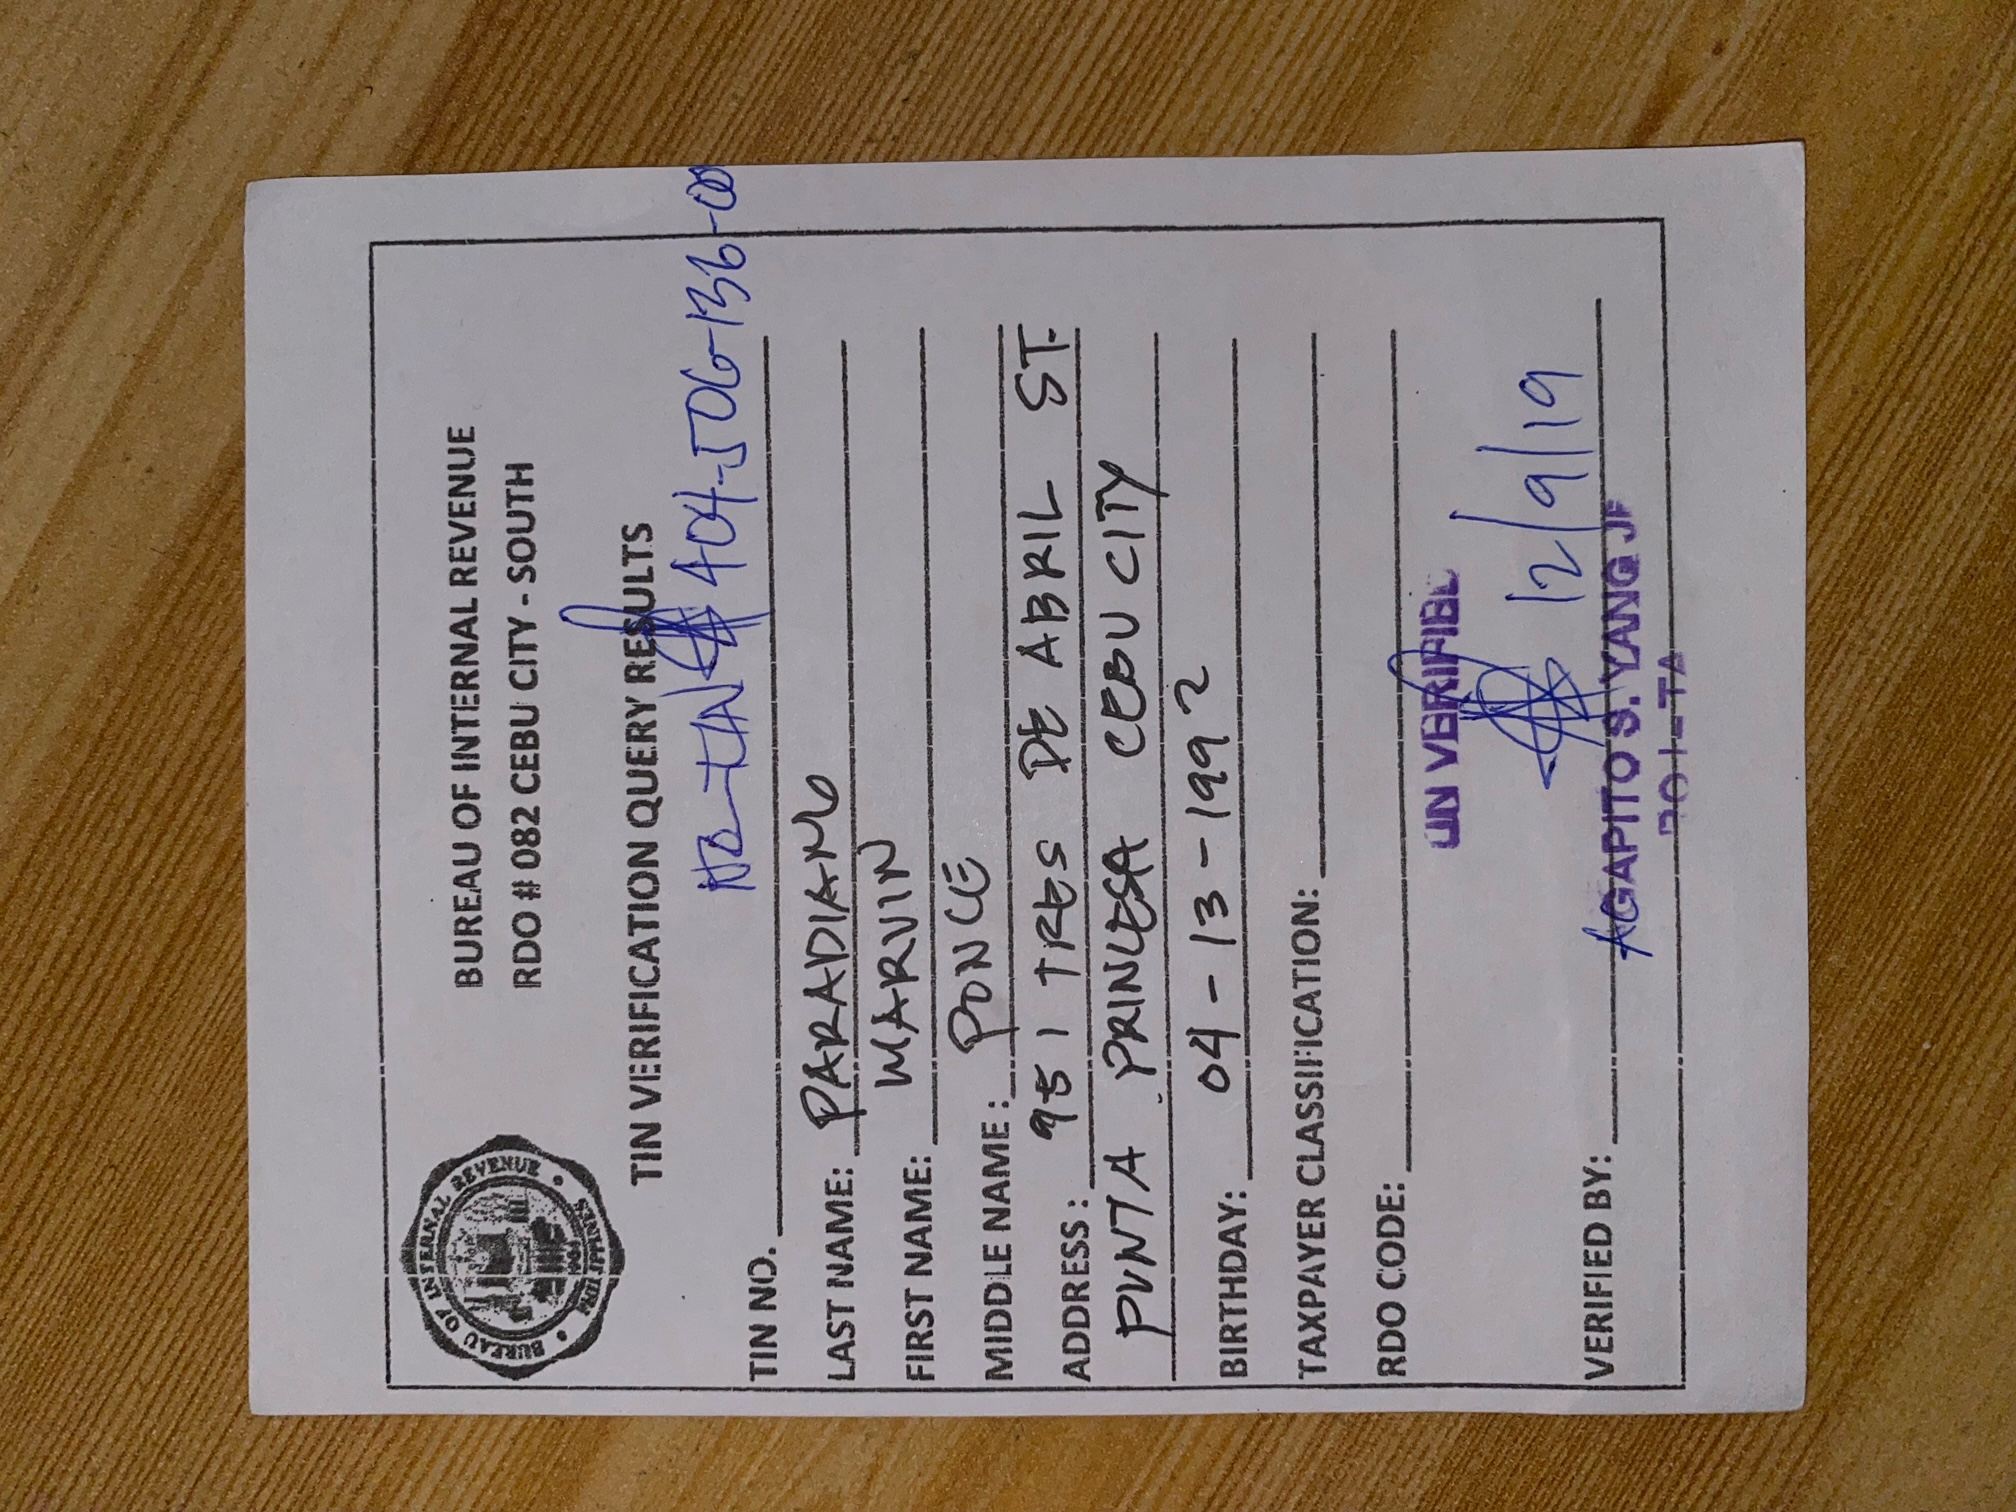 BUREAU OF INTERNAL REVENUE
BUREAU OF INTERNAL REVENUE
RDO # 082 CEBU CITY - SOUTH
TIN VERIFICATION QUERY RESULTS
NO TIN 404-506-136-00
TIN NO.
LAST NAME: PARADIANG
FIRST NAME: MARVIN
MIDDLE NAME: PONCE
ADDRESS: 951 TRES DE ABRIL ST.
PUNTA PRINCESA CEBU CITY
BIRTHDAY: 04-13-1992
TAXPAYER CLASSIFICATION:
RDO CODE:
UN VERIFIBL
12/9/19
VERIFIED BY: AGAPITO S. YANG JR